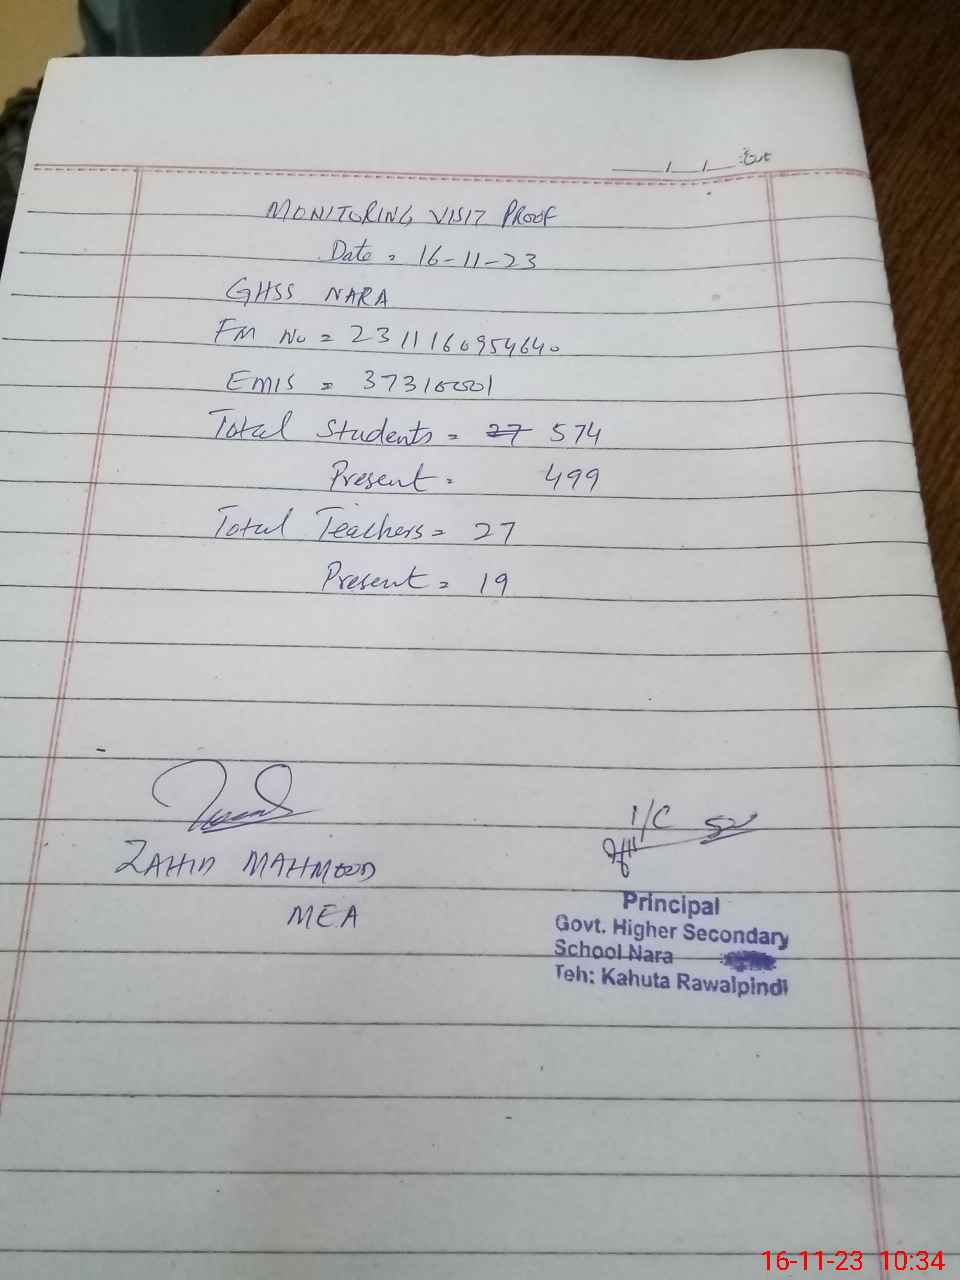 __/__/__ تاریخ:
MONITORING VISIT PROOF
Date = 16-11-23
GHSS NARA
FM No = 231116095464०
EMIS = 37310001
Total Students = 27 574
Present = 499
Total Teachers = 27
Present = 19
ZAHID MAHMOOD
MEA
I/C
Principal
Govt. Higher Secondary
School Nara
Teh: Kahuta Rawalpindi
16-11-23 10:34